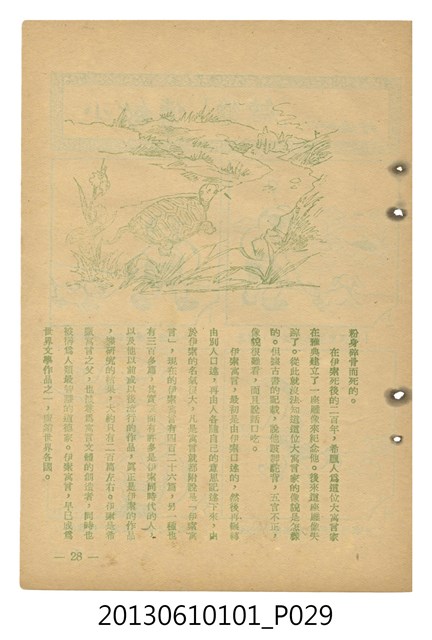 粉身碎骨而死的。
在伊索死後的二百年，希臘人爲這位大寓言家
在雅典建立了一座雕像來紀念他。後來這座雕像失
踪了。從此就沒法知道這位大寓言家的像貌是怎樣
的。但據古書的記載，說他頭部駝背，五官不正，
像貌很難看，而且說話口吃。
伊索寓言，最初是由伊索口述的，然後再輾轉
由別人口述，再由人各隨自己的意思記錄下來，由
於伊索的名氣很大，凡是寓言就都附說是「伊索寓
言」，現在的伊索寓言有四百二十六篇，另一種也
有三百多篇，其實
伊索同時代的人，
以及他以前或以後流行的作品，真正是伊索的作品
，據研究的結果，大約只有二百篇左右。伊索是希
臘寓言之父，也
寓言文體的創造者，同時也
被稱爲人類最
的道德家。伊索寓言，早已成爲
世界文學作品之一，
世界各國。
— 28 —
20130610101_P029